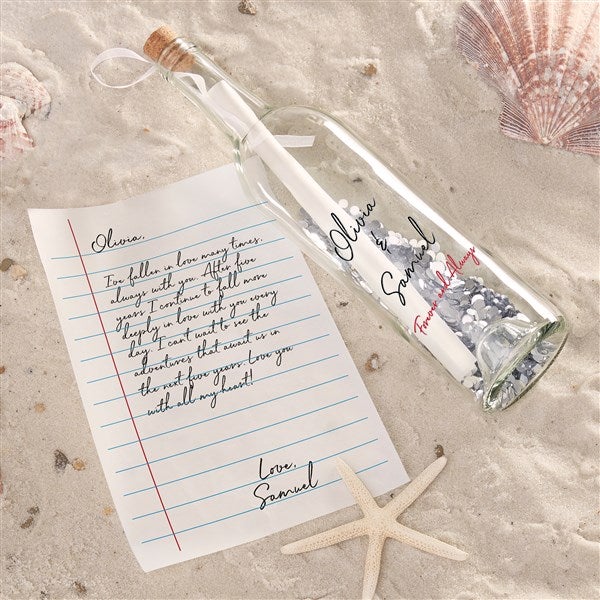 Olivia,
I've fallen in love many times,
always with you. After five
years I continue to fall more
deeply in love with you every
day. I can't wait to see the
adventures that await us in
the next five years. Love you
with all my heart!
Love,
Samuel
Olivia
&
Samuel
Forever and Always